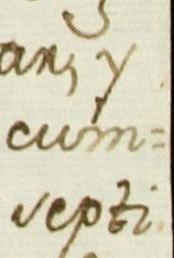 an, y
cum=
septi